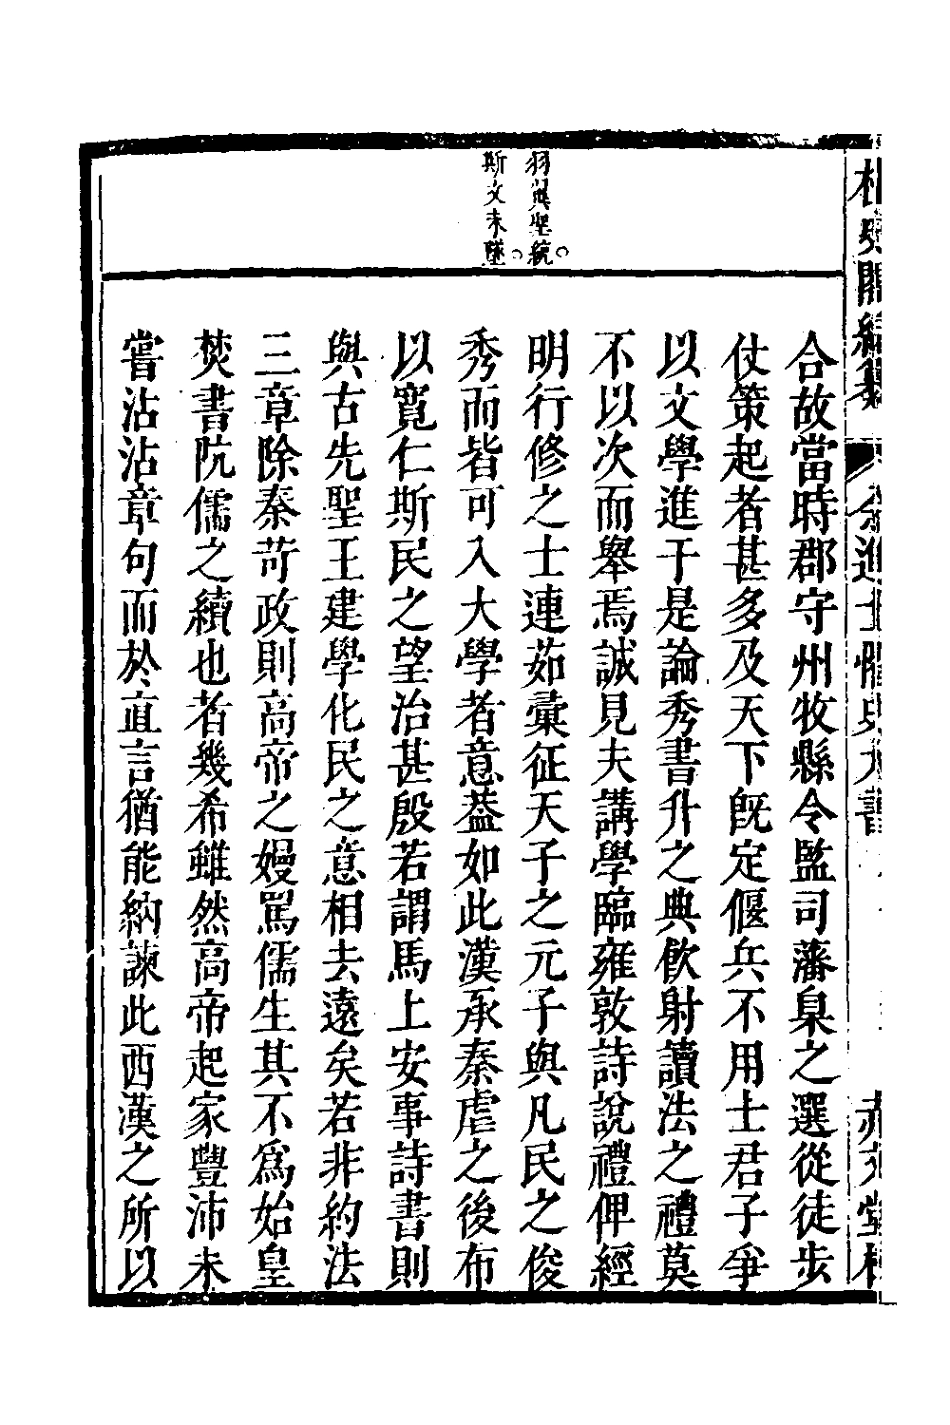 羽翼聖統。
斯文未墜。
合故當時郡守州牧縣令監司藩臬之選從徒步
仗策起者甚多及天下既定偃兵不用士君子爭
以文學進于是論秀書升之典飲射讀法之禮莫
不以次而舉焉誠見夫講學臨雍敦詩說禮俾經
明行修之士連茹彙征天子之元子與凡民之俊
秀而皆可入大學者意葢如此漢承秦虐之後布
以寬仁斯民之望治甚殷若謂馬上安事詩書則
與古先聖王建學化民之意相去遠矣若非約法
三章除秦苛政則高帝之嫚罵儒生其不爲始皇
焚書阬儒之續也者幾希雖然高帝起家豐沛未
嘗沾沾章句而於直言猶能納諫此西漢之所以